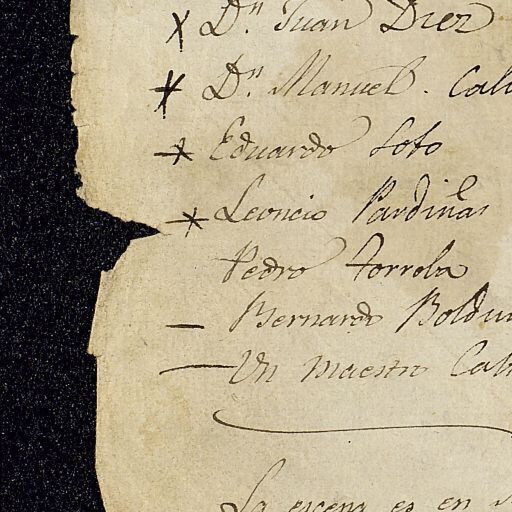 Dn. Juan Diez
Dn. Manuel. Cal
Eduardo Soto
Leoncio Pardiñas
Pedro Torrola
Bernardo Boldu
Un Maestro Cal
La escena es en